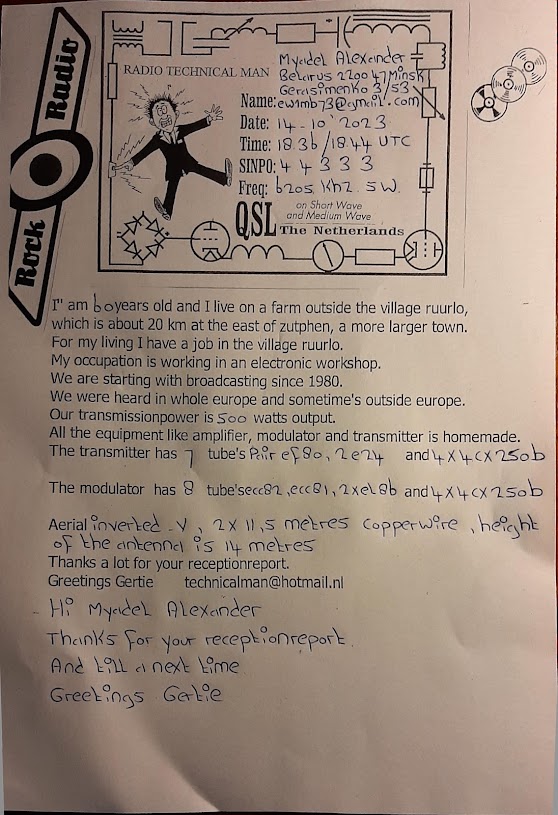 Rock Radio
RADIO TECHNICAL MAN
Myadel Alexander
Belarus 220047 Minsk
Gerasimenko 3/53
Name: ew1mb73@gmail.com
Date: 14-10'2023
Time: 18.36/18.44 UTC
SINPO: 4 4 3 3 3
Freq: 6205 Khz. SW.
QSL on Short Wave
and Medium Wave
The Netherlands
I'' am 60 years old and I live on a farm outside the village ruurlo,
which is about 20 km at the east of zutphen, a more larger town.
For my living I have a job in the village ruurlo.
My occupation is working in an electronic workshop.
We are starting with broadcasting since 1980.
We were heard in whole europe and sometime's outside europe.
Our transmissionpower is 500 watts output.
All the equipment like amplifier, modulator and transmitter is homemade.
The transmitter has 7 tube's ef80, 2e24 and 4X4cx250b
The modulator has 8 tube's ecc82, ecc81, 2xel86 and 4X4cx250b
Aerial inverted-V, 2X11,5 metres copperwire, height
of the antenna is 14 metres
Thanks a lot for your receptionreport.
Greetings Gertie technicalman@hotmail.nl
Hi Myadel Alexander
Thanks for your receptionreport.
And till a next time
Greetings Gertie